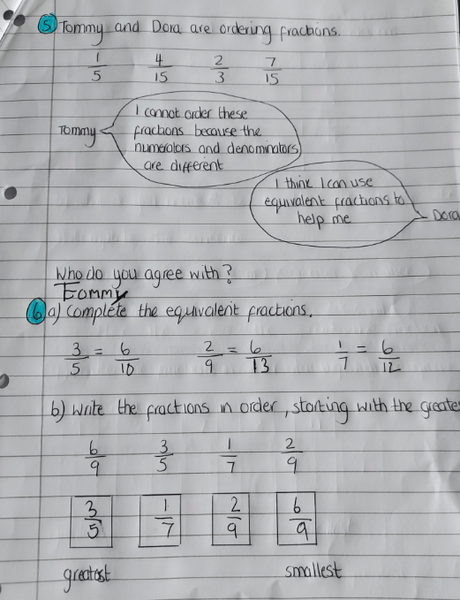 5 Tommy and Dora are ordering fractions.
1/5 4/15 2/3 7/15
Tommy
I cannot order these
fractions because the
numerators and denominators
are different
I think I can use
equivalent fractions to
help me
Dora
Who do you agree with?
Tommy
6 a) Complete the equivalent fractions.
3/5 = 6/10 2/9 = 6/13 1/7 = 6/12
b) Write the fractions in order, starting with the greates
6/9 3/5 1/7 2/9
3/5 1/7 2/9 6/9
greatest smallest